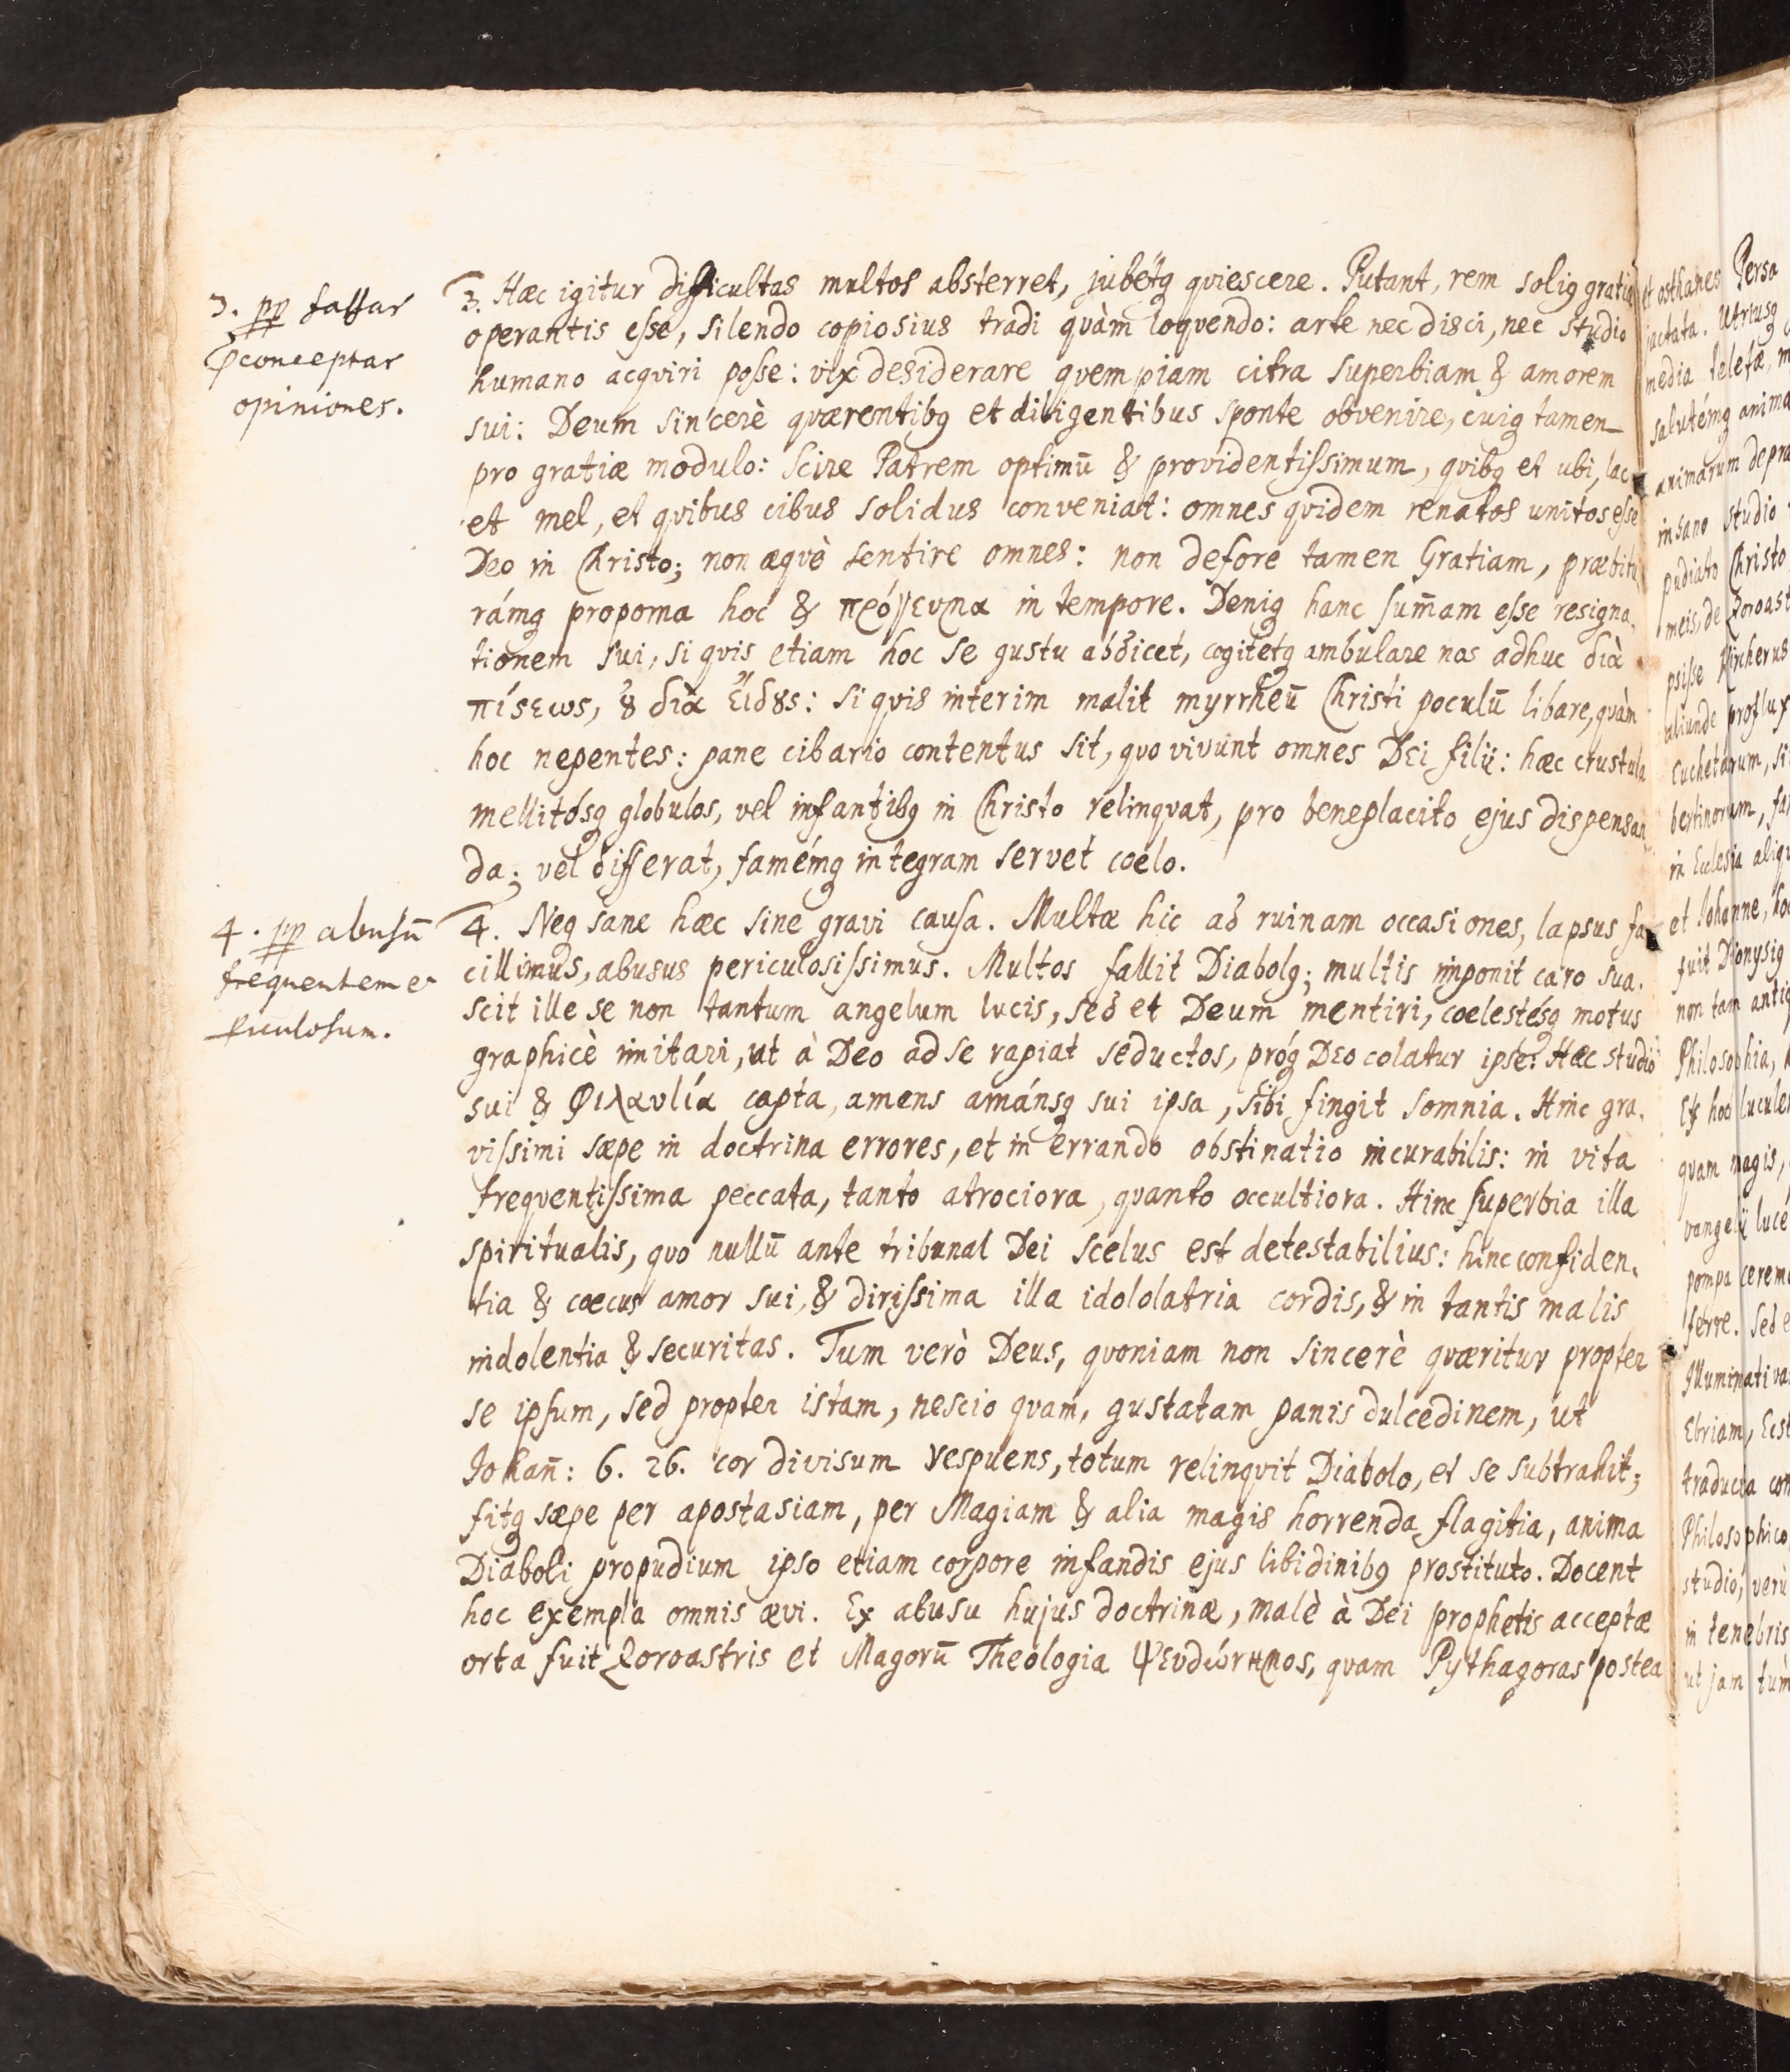 3. pp falsas
pconceptas
opiniones.
3. Hæc igitur difficultas multos absterret, jubetq́ qviescere. Putant, rem soliq gratiæ
operantis esse, silendo copiosius tradi qvàm loqvendo: arte nec disci, nec studio
humano acqviri posse: vix desiderare qvempiam citra superbiam & amorem
sui: Deum sincerè qværentibq et diligentibus sponte obvenire, cuiq tamen
pro gratiæ modulo: scire Patrem optimū & providentissimum, qvibq et ubi, lac
et mel, et qvibus cibus solidus conveniat: omnes qvidem renatos unitos esse
Deo in Christo; non æqvè sentire omnes: non defore tamen Gratiam, præbitu
rámq propoma hoc & πρόγευμα in tempore. Deniq hanc sum̄am esse resigna-
tionem sui, si qvis etiam hoc se gustu abdicet, cogitetq ambulare nos adhuc διὰ
πίςεως, ȣ διὰ εἴδȣς: si qvis interim malit myrrheū Christi poculū libare, qvàm
hoc nepentes: pane cibario contentus sit, qvo vivunt omnes Dei filij: hæc crustula
mellitósq globulos, vel infantibq in Christo relinqvat, pro beneplacito ejus dispensan
da; vel differat, famémq integram servet coelo.
4. pp abusū
freqventem e
piculosum.
4. Neq sane hæc sine gravi causa. Multæ hic ad ruinam occasiones, lapsus fa-
cillimus, abusus periculosissimus. Multos fallit Diabolq; multis imponit caro sua.
scit ille se non tantum angelum lucis, sed et Deum mentiri, coelestésq motus
graphicè imitari, ut à Deo ad se rapiat seductos, próq Deo colatur ipse. Hæc studio
sui & Φιλαυλία capta, amens amánsq sui ipsa, sibi fingit somnia. Hinc gra-
vissimi sæpe in doctrina errores, et in errando obstinatio incurabilis: in vita
freqventissima peccata, tanto atrociora, qvanto occultiora. Hinc superbia illa
spiritualis, qvo nullū ante tribunal Dei scelus est detestabilius: hinc confiden-
tia & coecus amor sui, & dirissima illa idololatria cordis, & in tantis malis
indolentia & securitas. Tum verò Deus, qvoniam non sincerè qværitur propter
se ipsum, sed propter istam, nescio qvam, gustatam panis dulcedinem, ut
Johan̄: 6. 26. cor divisum respuens, totum relinqvit Diabolo, et se subtrahit;
fitq sæpe per apostasiam, per Magiam & alia magis horrenda flagitia, anima
Diaboli propudium ipso etiam corpore infandis ejus libidinibq prostituto. Docent
hoc exempla omnis ævi. Ex abusu hujus doctrinæ, malè à Dei prophetis acceptæ
orta fuit Zoroastris et Magorū Theologia ψευδώνημος, qvam Pythagoras postea
et osthanes Persa
jactata. Utriusq
media
salutémq anima
animarum depra
insano studio
pudiato Christo
meis, de Zoroast
psisse Kircherus
aliunde proflux
in Ecclesia aliqu
et Iohanne,
fuit Dionysiq
non tam antiq
Philosophia,
Ex hoc luculen
qvam magis,
vangelij luce
pompa cerem
ferre. sed e
Illuminati va
Ebriam, Ecst
traducta con
Philosophico
studio, verù
in tenebris
ut jam tùm